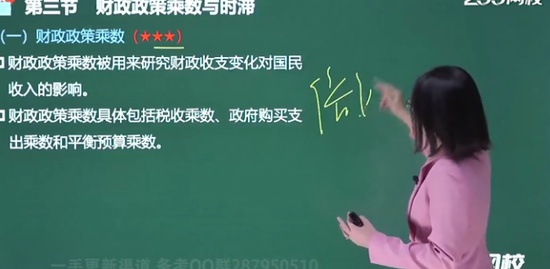 第三节 财政政策乘数与时滞
网校
(一)财政政策乘数(★★★)
财政政策乘数被用来研究财政收支变化对国民
收入的影响。
财政政策乘数具体包括税收乘数、政府购买支
出乘数和平衡预算乘数。
一手更新渠道 备考QQ群287950510
网校